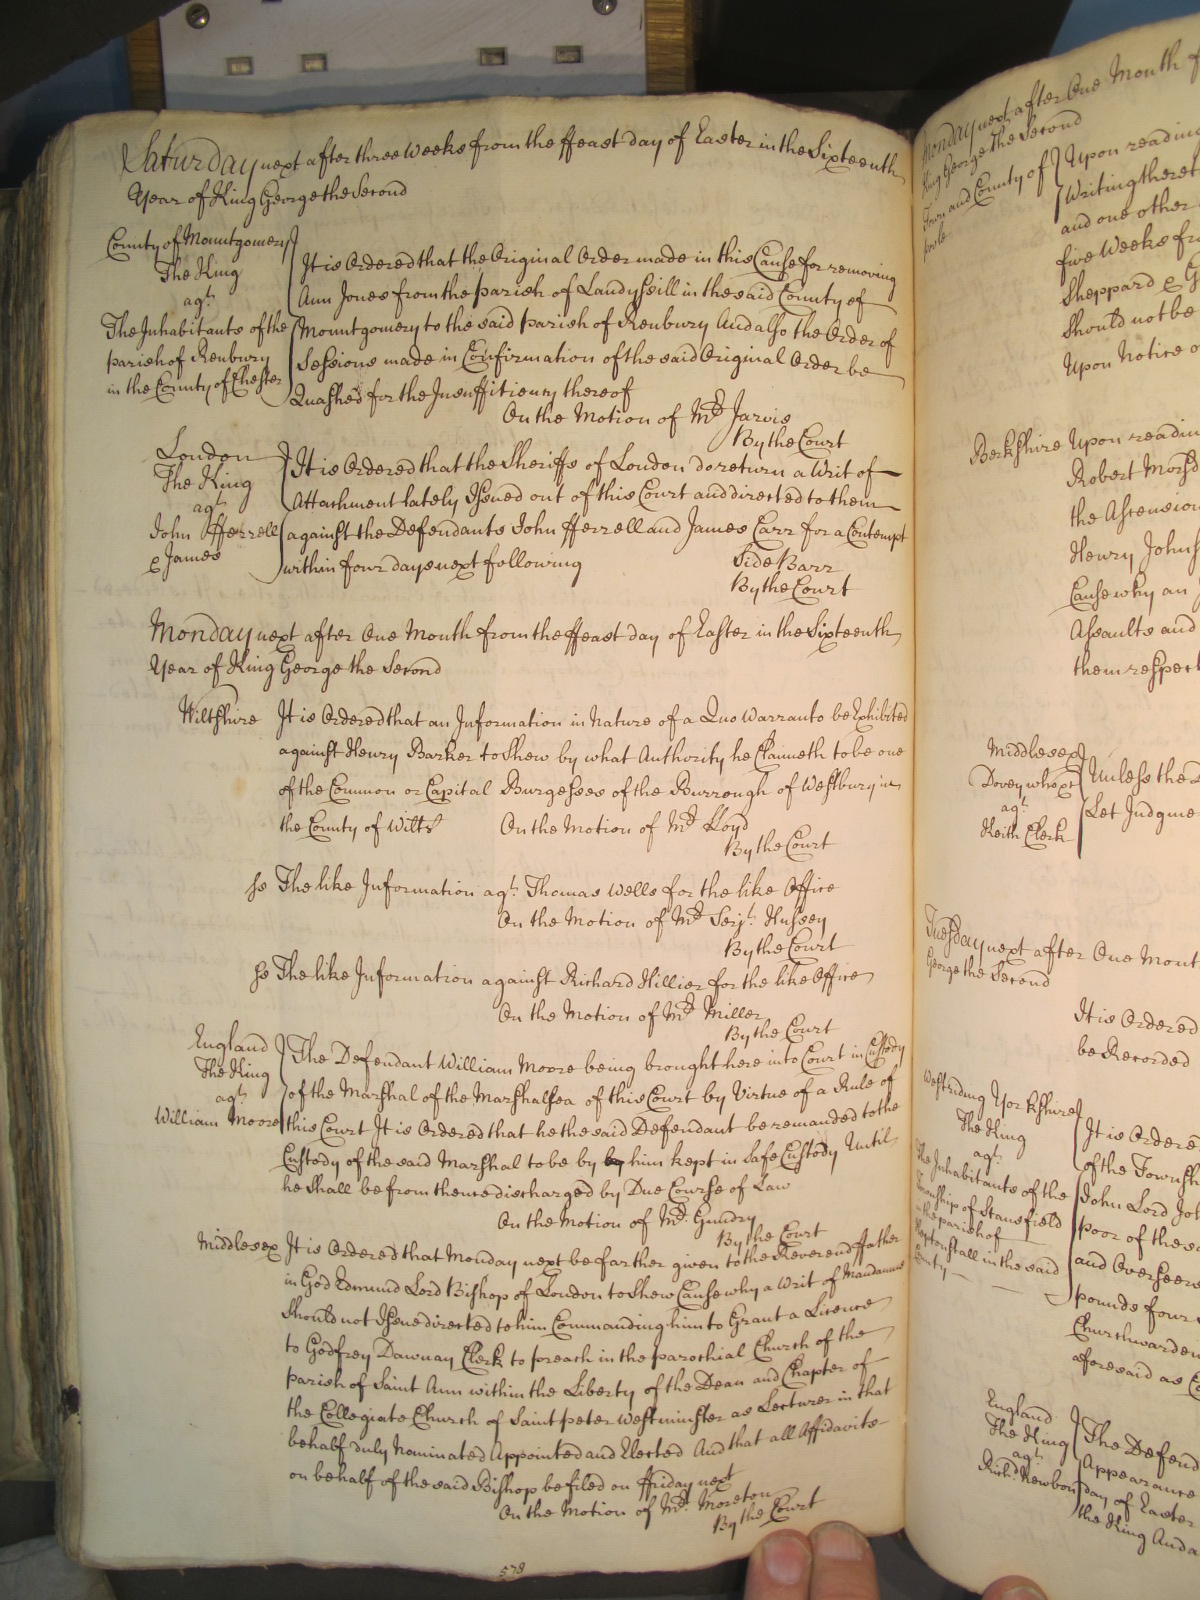 Saturday next after three Weeks from the ffeast day of Easter in the Sixteenth
Year of King George the Second
County of Mountgomery
The King
agt.
The Inhabitants of the
parish of Renbury
in the County of Chester
It is Ordered that the Original Order made in this Cause for removing
Ann Jones from the parish of Landyssill in the said County of
Mountgomery to the said parish of Renbury And also the Order of
Sessions made in Confirmation of the said Original Order be
Quashed for the Insufficiency thereof
On the Motion of Mr. Jarvis
By the Court
London
The King
agt.
John Fferrell
& James
It is Ordered that the Sheriffs of London do return a Writ of
Attachment lately Issued out of this Court and directed to them
against the Defendants John Fferrell and James Carr for a Contempt
within four days next following
Side Barr
By the Court
Monday next after One Month from the ffeast day of Easter in the Sixteenth
Year of King George the Second
Wiltshire It is Ordered that an Information in Nature of a Quo Warranto be Exhibited
against Henry Barker to Shew by what Authority he Claimeth to be one
of the Common or Capital Burgesses of the Burrough of Westbury in
the County of Wilts On the Motion of Mr. Lloyd
By the Court
ss The like Information agt. Thomas Wells for the like Office
On the Motion of Mr. Serjt. Hussey
By the Court
ss The like Information against Richard Hillier for the like Office
On the Motion of Mr. Miller
By the Court
England
The King
agt.
William Moore
The Defendant William Moore being brought here into Court in Custody
of the Marshal of the Marshalsea of this Court by Virtue of a Rule of
this Court It is Ordered that he the said Defendant be remanded to the
Custody of the said Marshal to be by by him kept in Safe Custody Until
he shall be from thence discharged by Due Course of Law
On the Motion of Mr. Gundry
By the Court
Middlesex It is Ordered that Monday next be farther given to the Reverend ffather
in God Edmund Lord Bishop of London to Shew Cause why a Writ of Mandamus
Should not Issue directed to him Commanding him to Grant a Licence
to Godfrey Dawnay Clerk to preach in the parochial Church of the
parish of Saint Ann within the Liberty of the Dean and Chapter of
the Collegiate Church of Saint peter Westminster as Lecturer in that
behalf duly Nominated Appointed and Elected And that all Affidavits
on behalf of the said Bishop be filed on ffriday next
On the Motion of Mr. Moreton
By the Court
578
Monday next after One Month
King George the Second
Town and County of
poole
Upon reading
Writing thereto
and one other
five Weeks from
Sheppard &
Should not be
Upon Notice
Berkshire Upon reading
Robert
the Ascension
Henry Johns
Cause why an
Assaults and
them respect
Middlesex
Dovey
agt.
Keith Clerk
Unless the
Let Judgme
Tuesday next after One Mont
George the Second
It is Ordered
be Recorded
West riding Yorkshire
The King
agt.
The Inhabitants of the
Township of Stansfield
in the parish of
Heptonstall in the said
County
It is Ordered
of the Townsh
John Lord
poor of the
and Overseers
pounds four
Churchwarden
aforesaid as
England
The King
agt.
Richd. Newbon
The Defend
Appearance
day of Easter
the King And a